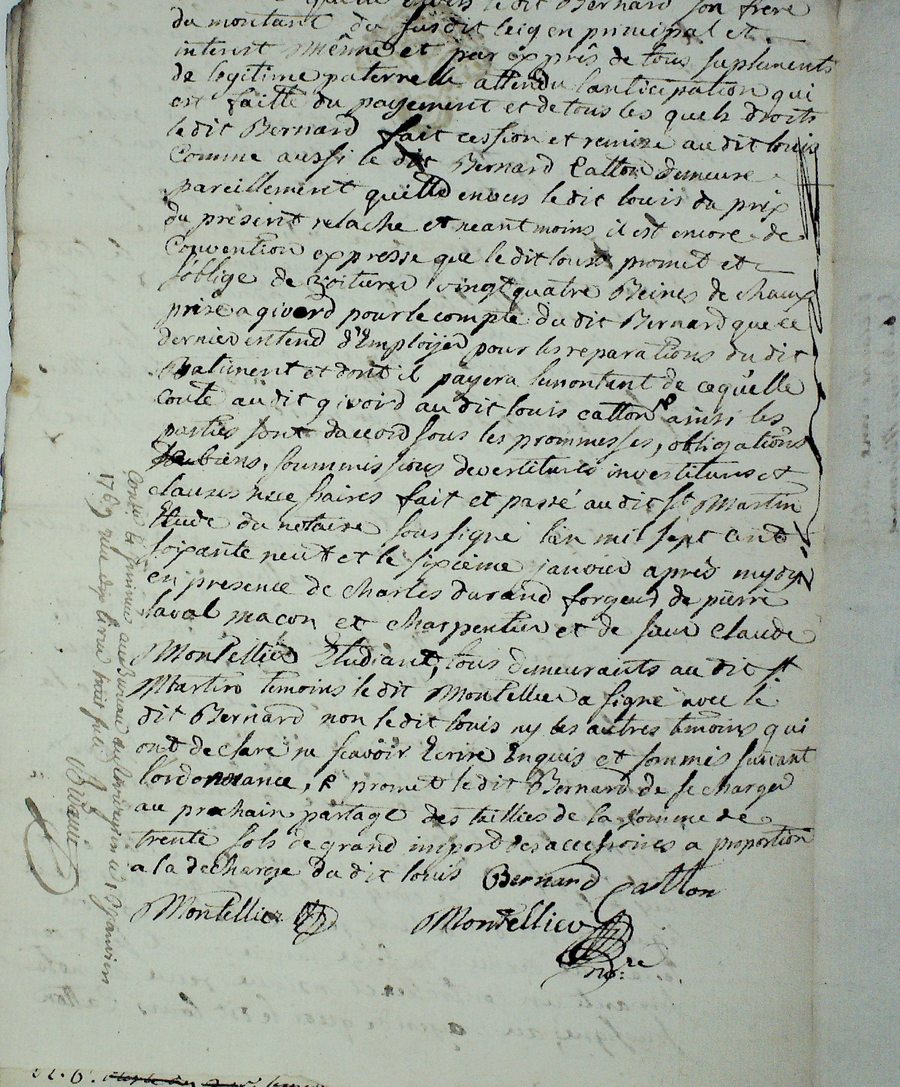 quitte envers le dit Bernard son frere
du montant du susdit leig en principal et
interest même et par exprès de tous suplements
de legitime paternelle attendu lanticipation qui
est faitte du payement et de tous les quels droits
le dit Bernard fait cession et remise au dit louis
Comme aussi le dit Bernard Catton demeure
pareillement quitte envers le dit louis du prix
du present relache et neantmoins il est encore de
Convention expresse que le dit louis promet et
s'oblige de voiturer vingt quatre Beines de chaux
prise a givord pour le compte du dit Bernard que ce
dernier entend d'Employer pour les reparations du dit
Batiment et dont il payera le montant de ce qu'elle
coute au dit givord au dit louis catton ainsi les
parties sont daccord sous les prommesses, obligations
biens, soummissions devertitures investitures et
clauses necessaires fait et passé au dit St Martin
Etude du notaire sous signé l'en mil sept cent
soixante neuf et le sixieme janvier après mydy
en presence de Charles durand forgeur de pierre
laval macon et charpentier et de sieur Claude
Montellier Etudiant, tous demeurants au dit St
Martin temoins le dit Montellier a signé avec le
dit Bernard non le dit louis ny les autres temoins qui
ont declaré ne scavoir Ecrire Enquis et sommis suivant
l'ordonnance, & promet le dit Bernard de se charger
au prochain partage des tailles de la somme de
trente sols de grand impord des accessoires a proportion
a la decharge du dit louis Bernard Catton
Montellier Montellier
no:re
Controllé la minute au Bureau de le janvier
1769 reçu dix livres huit sols